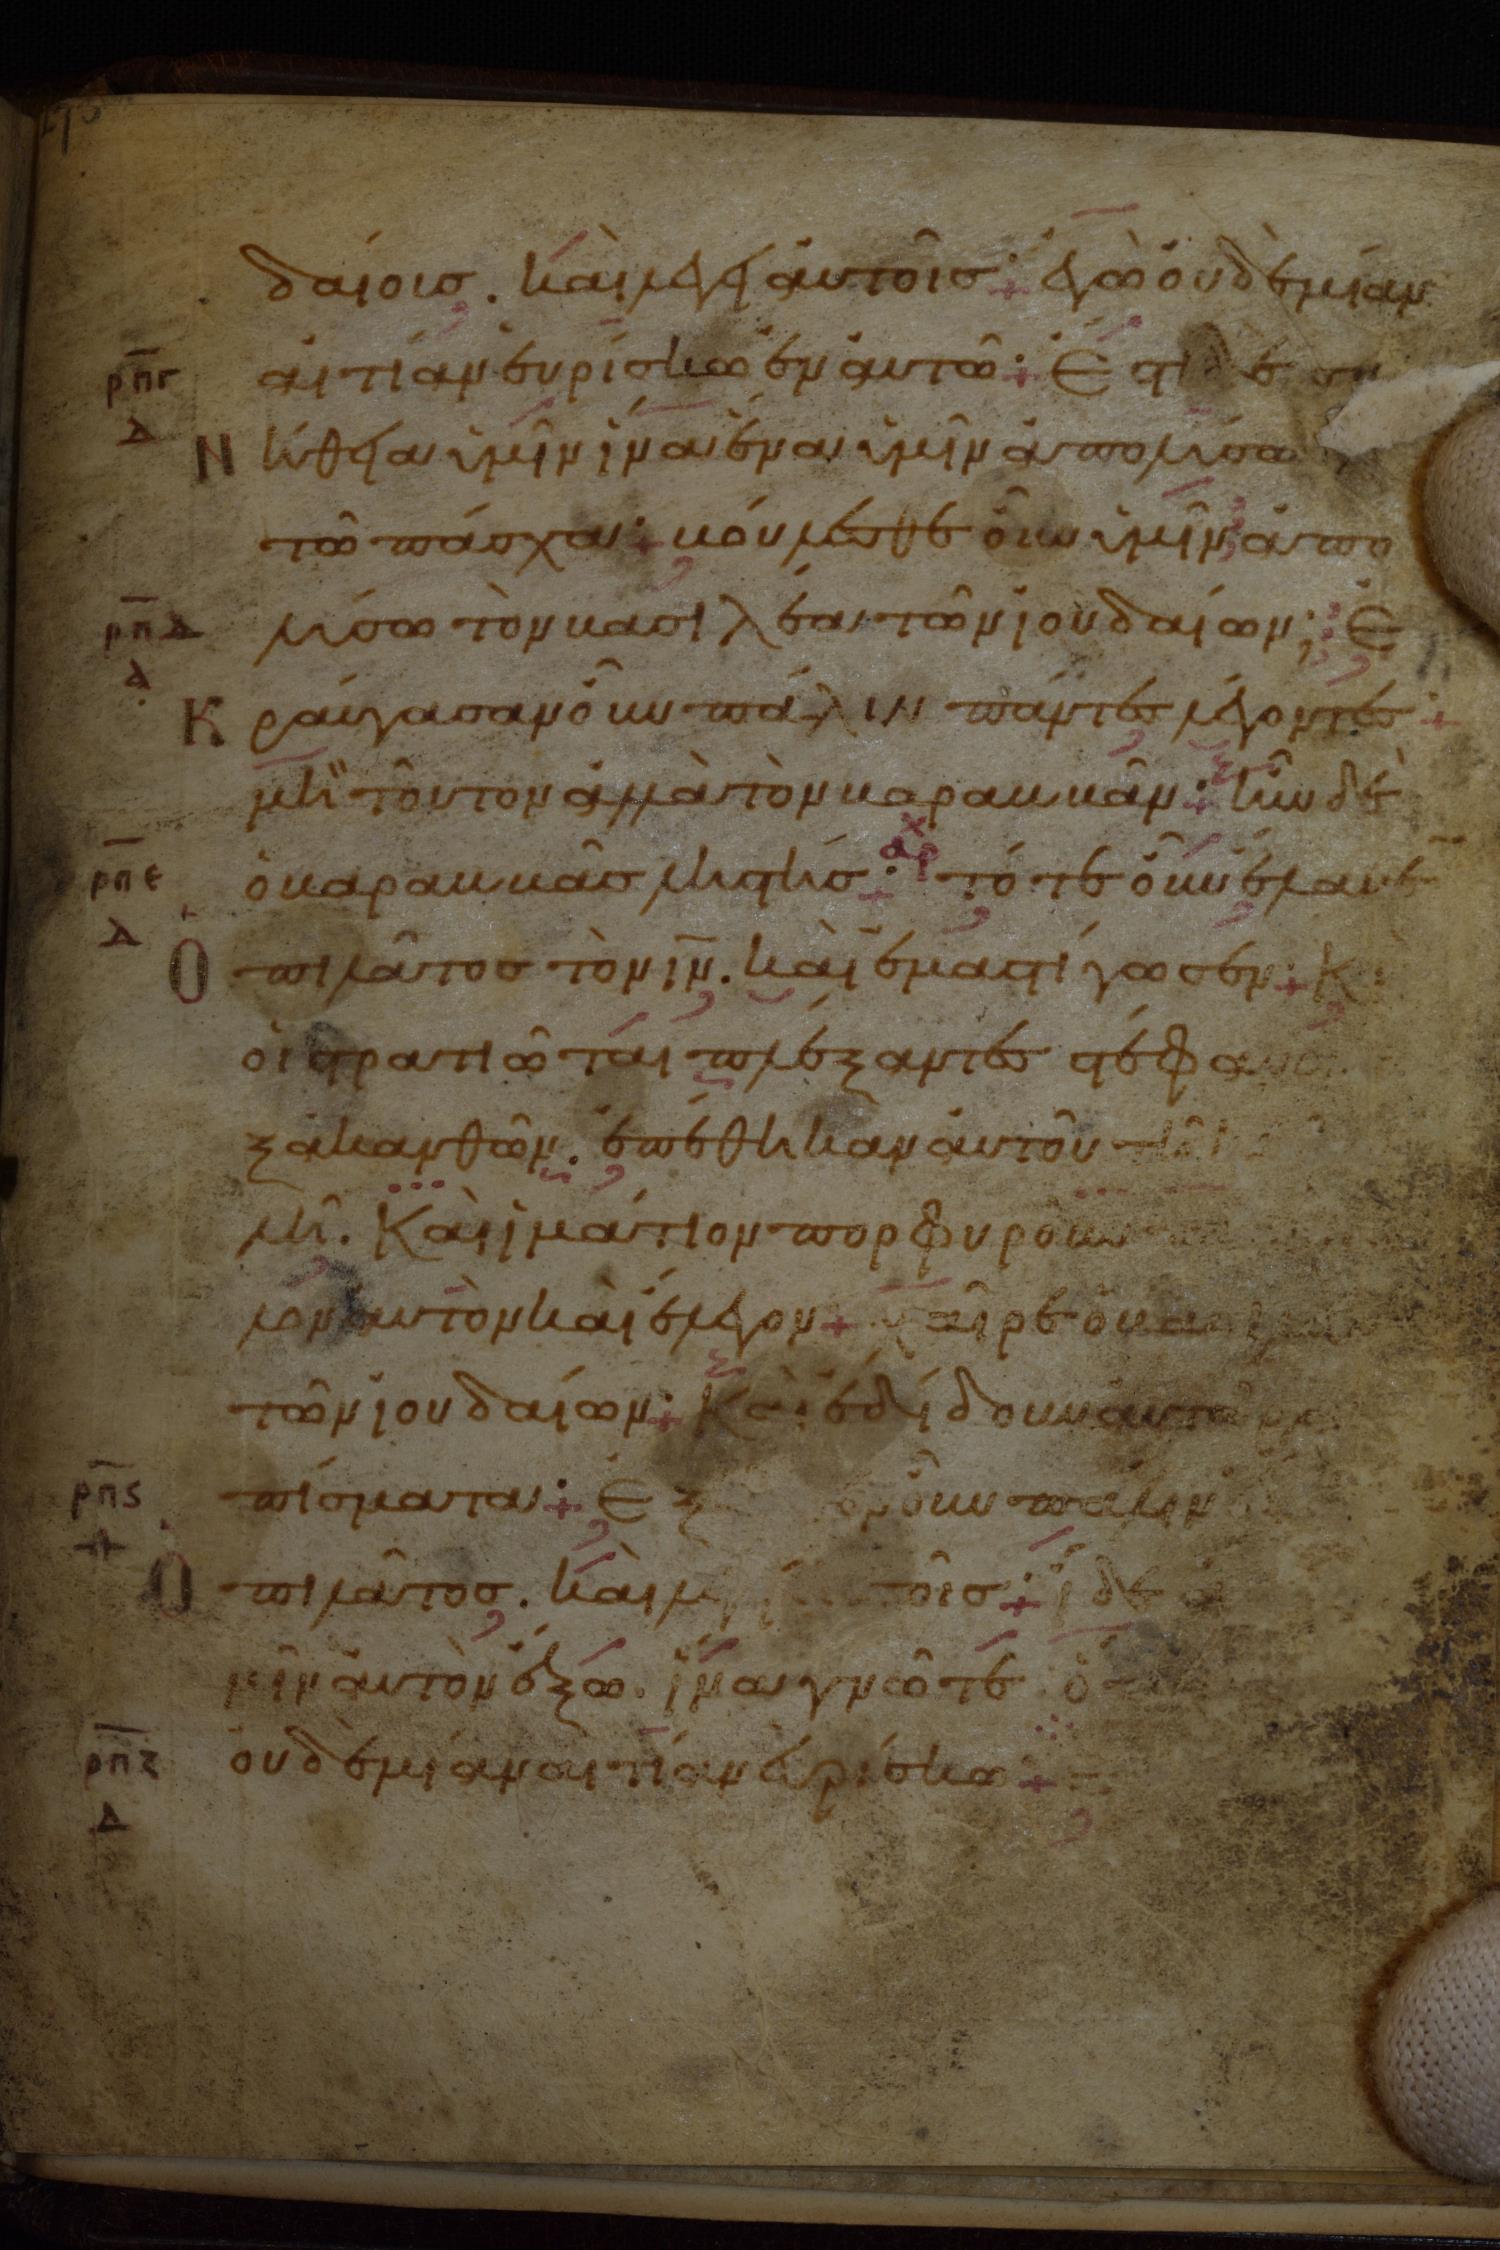 δαίοισ. καὶ λέγει ἀυτοῖσ· ἐγὼ ὀυδεμίαν
ρπγ ἀιτίαν ἐυρίσκω ἐν ἀυτῶ· Ἐστι δε συ
Δ Ν ήθεια ὑμῖν ἵνα ἕνα ὑμῖν ἀπολύσω
τῶ πάσχα· βούλεσθε οὖν ὑμῖν ἀπο
ρπδ λύσω τὸν βασιλέα τῶν ἰουδαίων; Ἐ
Δ Κ ραύγασαν οὖν πάλιν πάντες λέγοντες
μὴ τοῦτον ἀλλὰ τὸν βαραββᾶν· ἦν δὲ
ρπε ὁ βαραββᾶσ ληστήσ· αρχ τότε οὖν ἔλαβε
Δ Ο πιλᾶτοσ τὸν ιν. καὶ ἐμαστίγωσεν· Κ
οἱ στρατιῶται πλέξαντες στέφανον
ξ ἀκανθῶν. ἐπέθηκαν ἀυτοῦ τῆ κ
λῆ. Καὶ ἱμάτιον πορφυροῦν
λον ἀυτὸν καὶ ἔλεγον χαῖρε ὁ βα
τῶν ἰουδαίων· Καὶ ἐδίδουν ἀυτῶ ρα
ρπς πίσματα· Ἐξ οὖν πάλιν
Ο πιλᾶτοσ. καὶ λέγει τοῖσ· ἴδε
μῖν ἀυτὸν ἔξω. ἵνα γνῶτε ὅ
ρπζ ὀυδεμίαν ἀιτίαν ἑυρίσκω
Δ